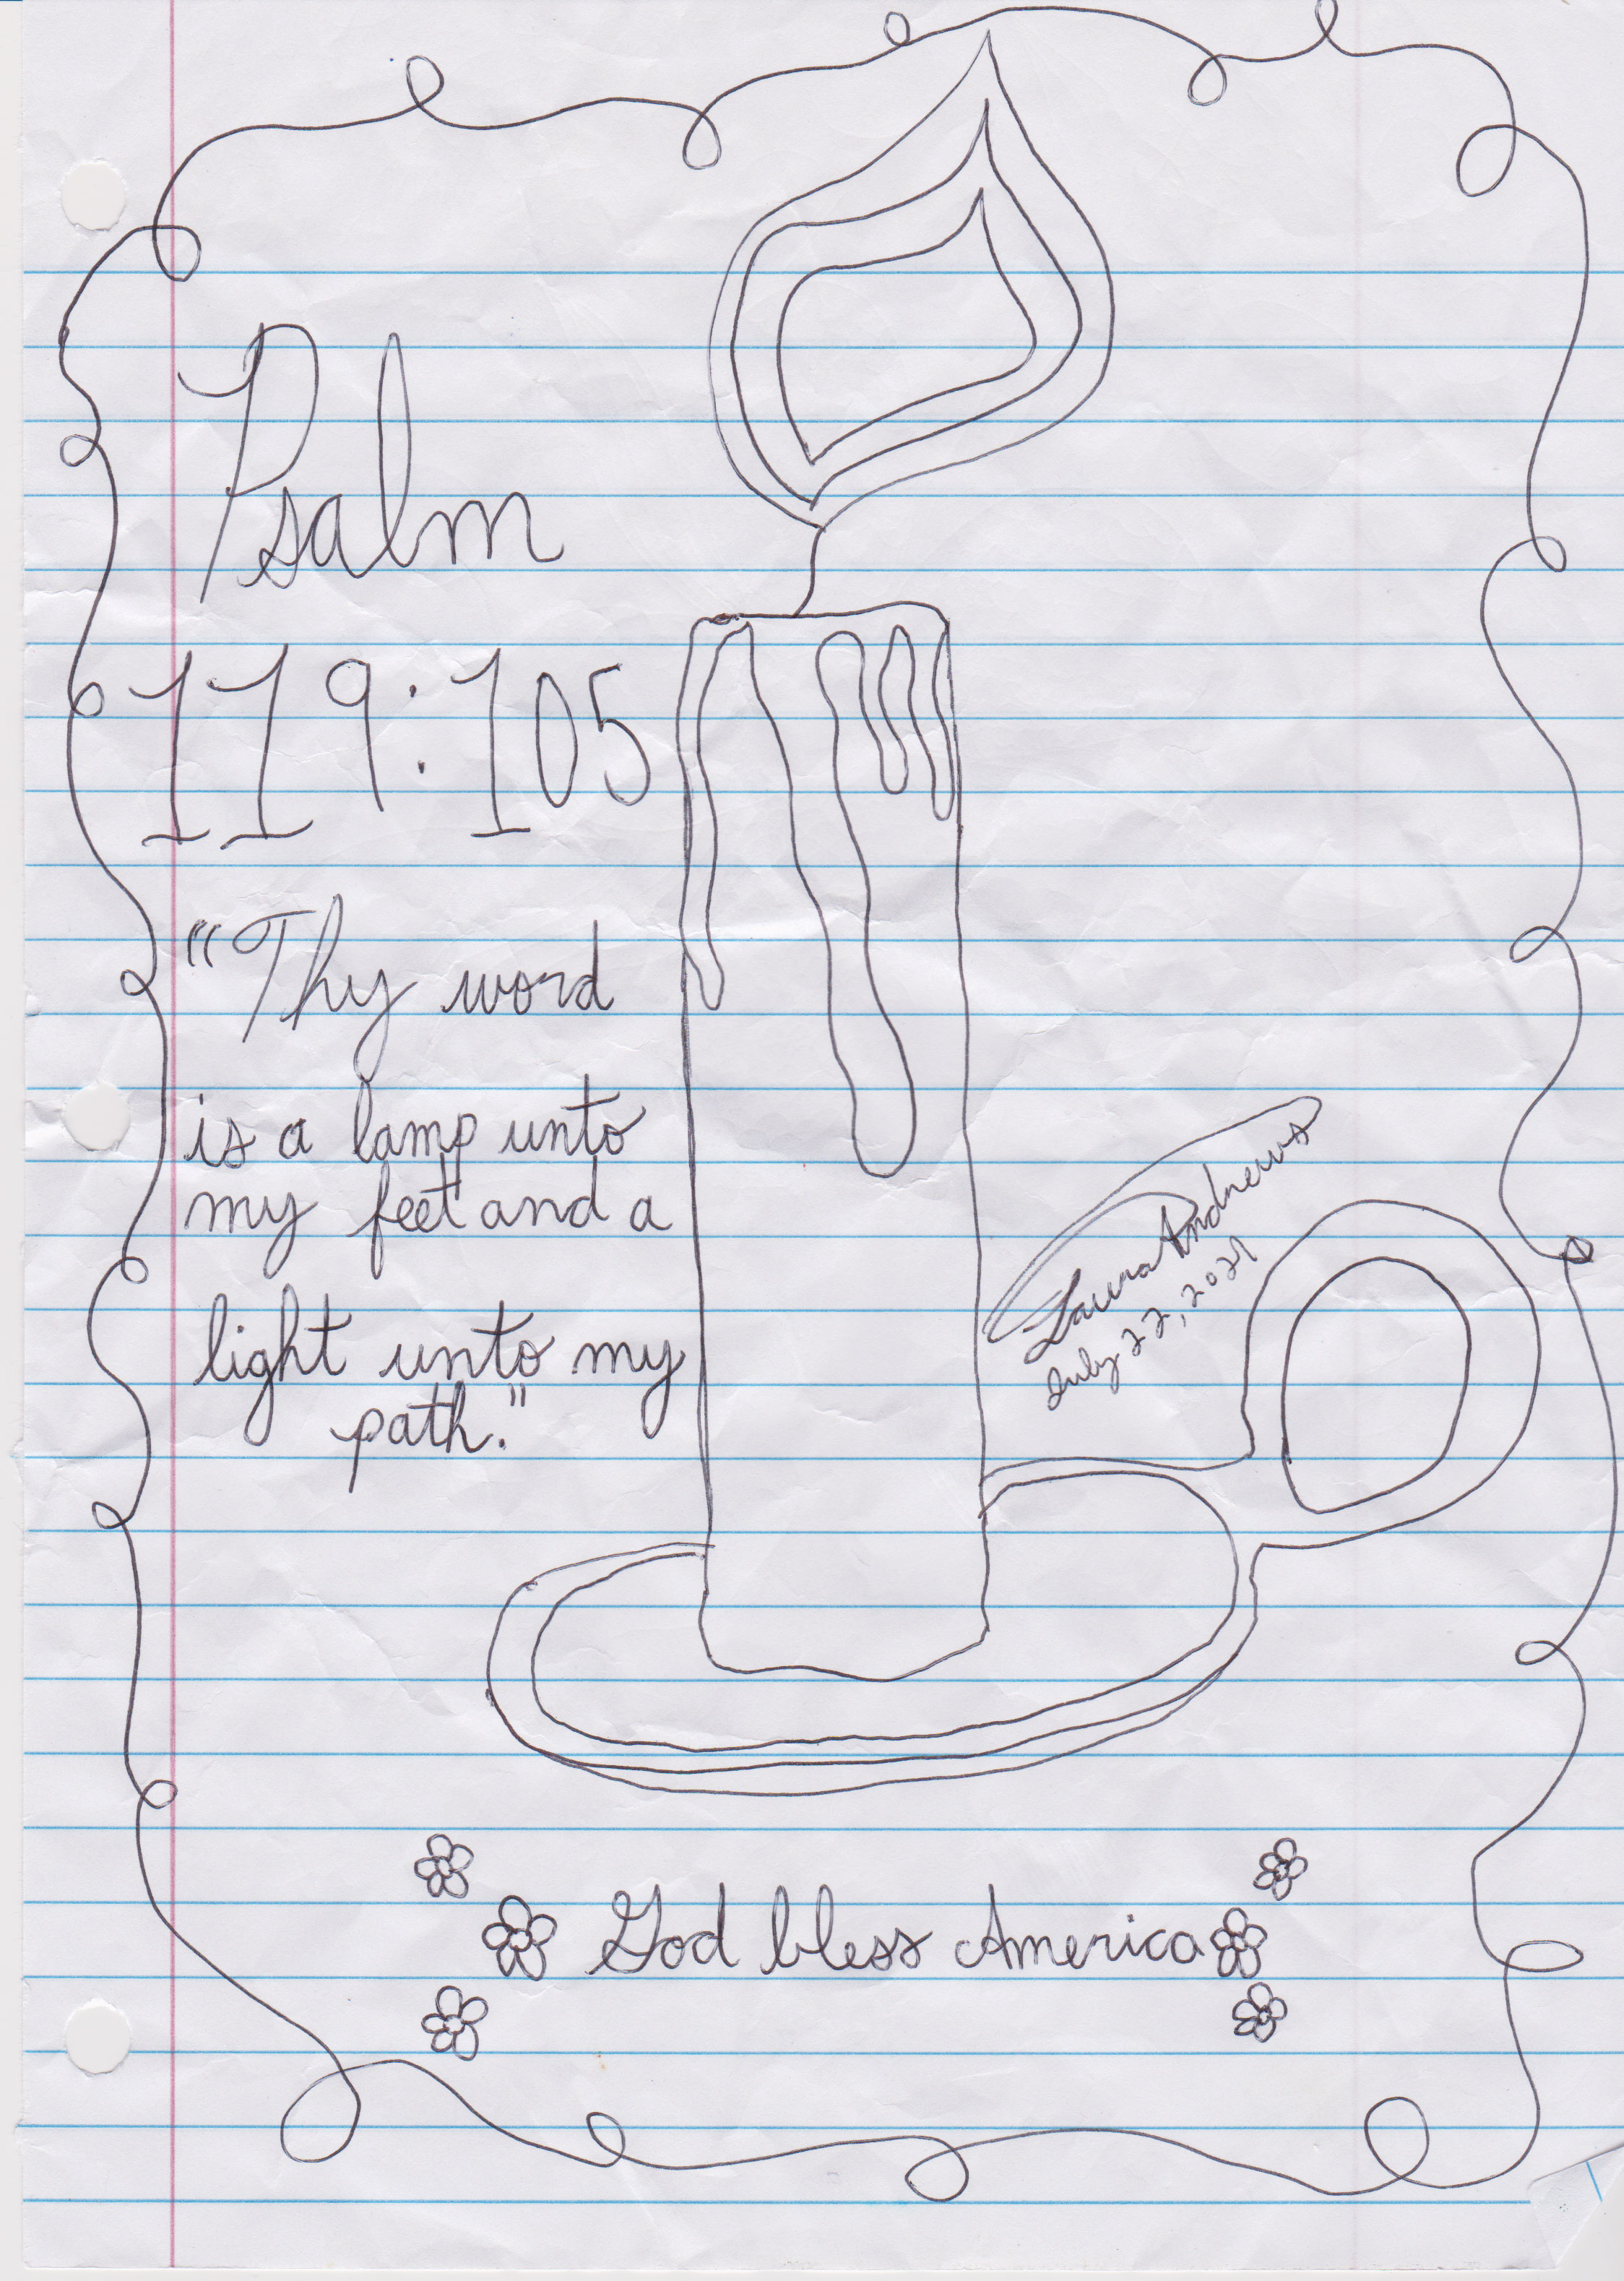 Psalm
119:105
"Thy word
is a lamp unto
my feet and a
light unto my
path."
Laura Andrews
July 22, 2021
God bless America